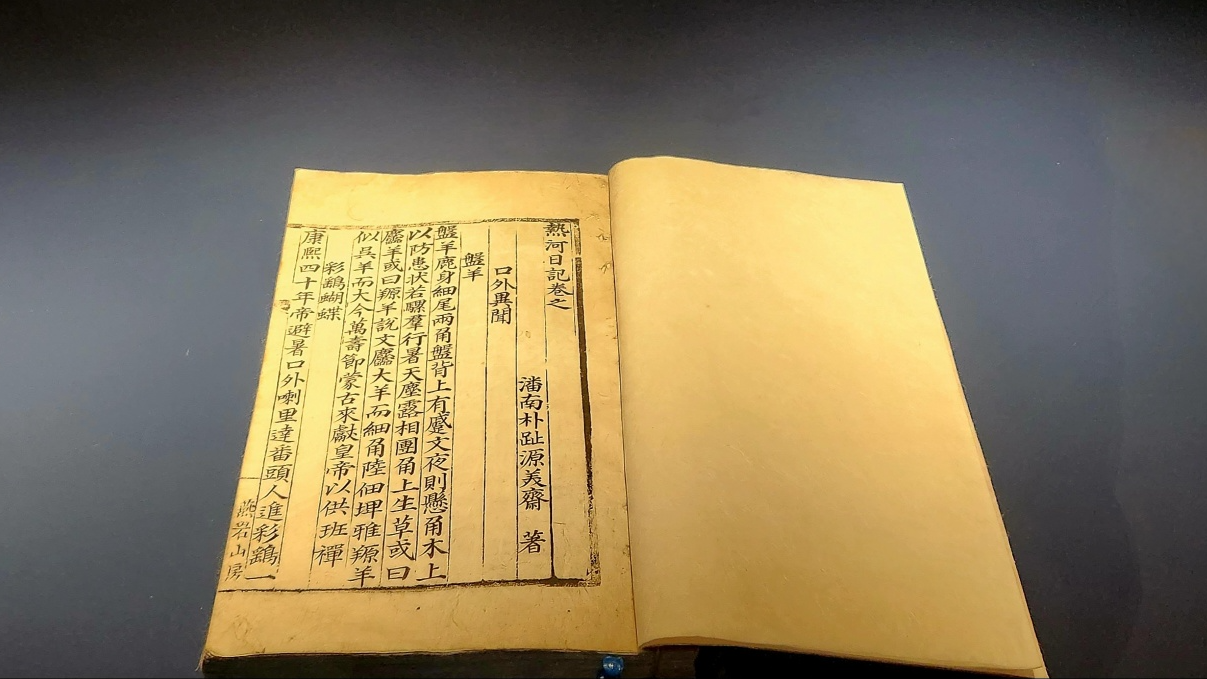 熱河日記卷之
潘南朴趾源美齋 著
口外異聞
盤羊
盤羊鹿身細尾兩角盤背上有蹙文夜則懸角木上
以防患状若騾羣行暑天塵露相團角上生草或曰
麢羊或曰羱羊說文麢大羊而細角陸佃埤雅羱羊
似吳羊而大今萬壽節蒙古來獻皇帝以供班禪
彩鷂蝴蝶
康熙四十年帝避暑口外喇里達番頭人進彩鷂一
燕岩山房